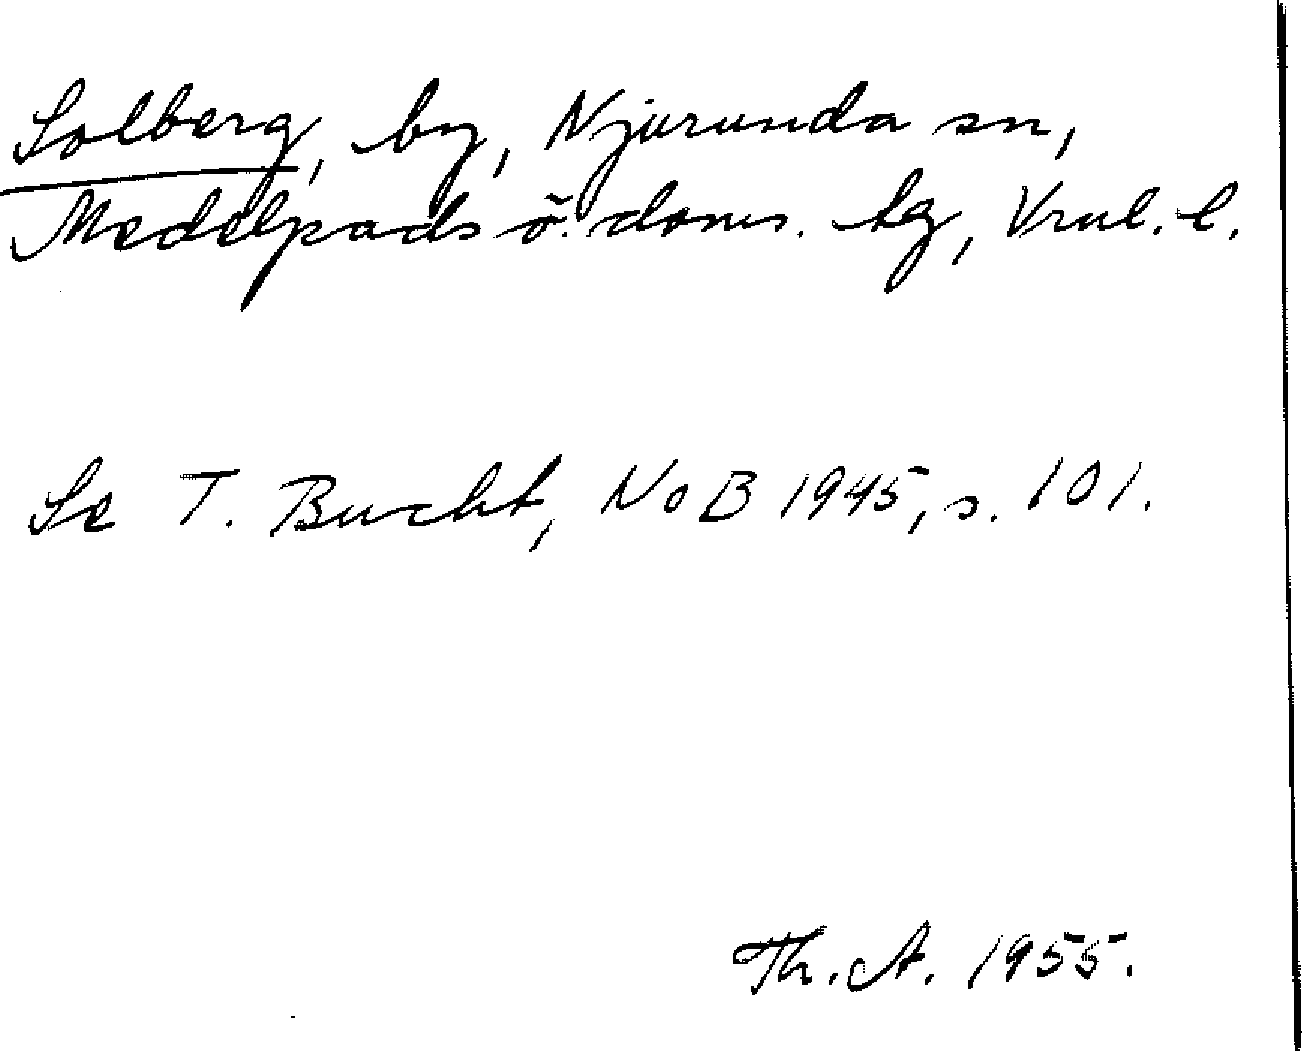 Solberg, by, Njurunda sn,
Medelpads ö. doms. tg, Vnl. l.
Se T. Bucht, NoB 1945, s. 101.
Th. A. 1955.